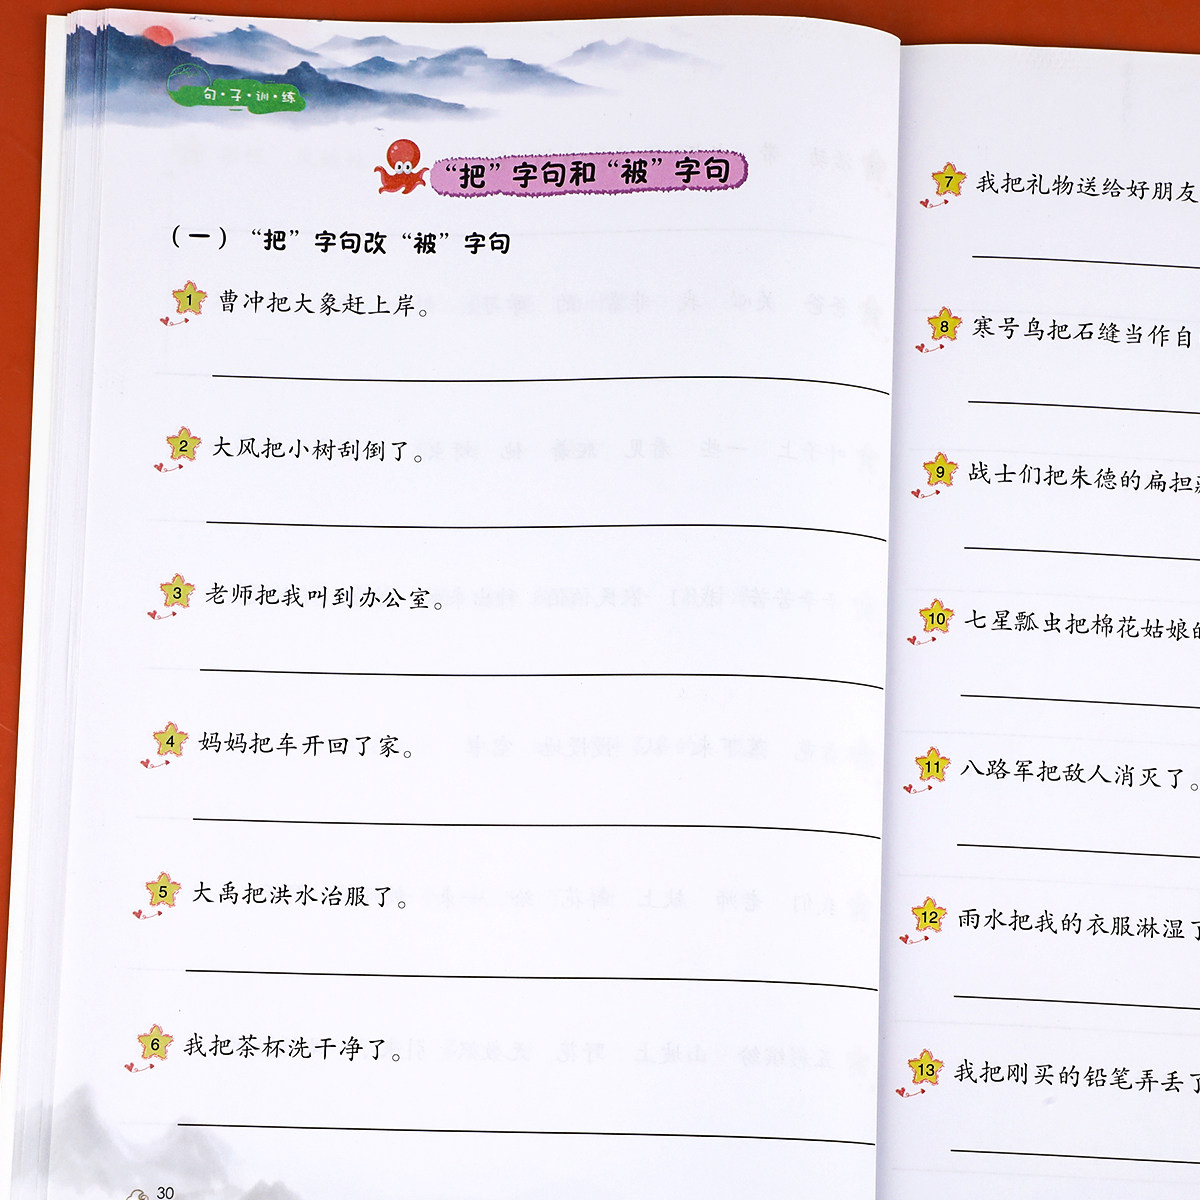 句·子·训·练
“把”字句和“被”字句
（一）“把”字句改“被”字句
1 曹冲把大象赶上岸。
2 大风把小树刮倒了。
3 老师把我叫到办公室。
4 妈妈把车开回了家。
5 大禹把洪水治服了。
6 我把茶杯洗干净了。
30
7 我把礼物送给好朋友
8 寒号鸟把石缝当作自
9 战士们把朱德的扁担
10 七星瓢虫把棉花姑娘的
11 八路军把敌人消灭了。
12 雨水把我的衣服淋湿了
13 我把刚买的铅笔弄丢了